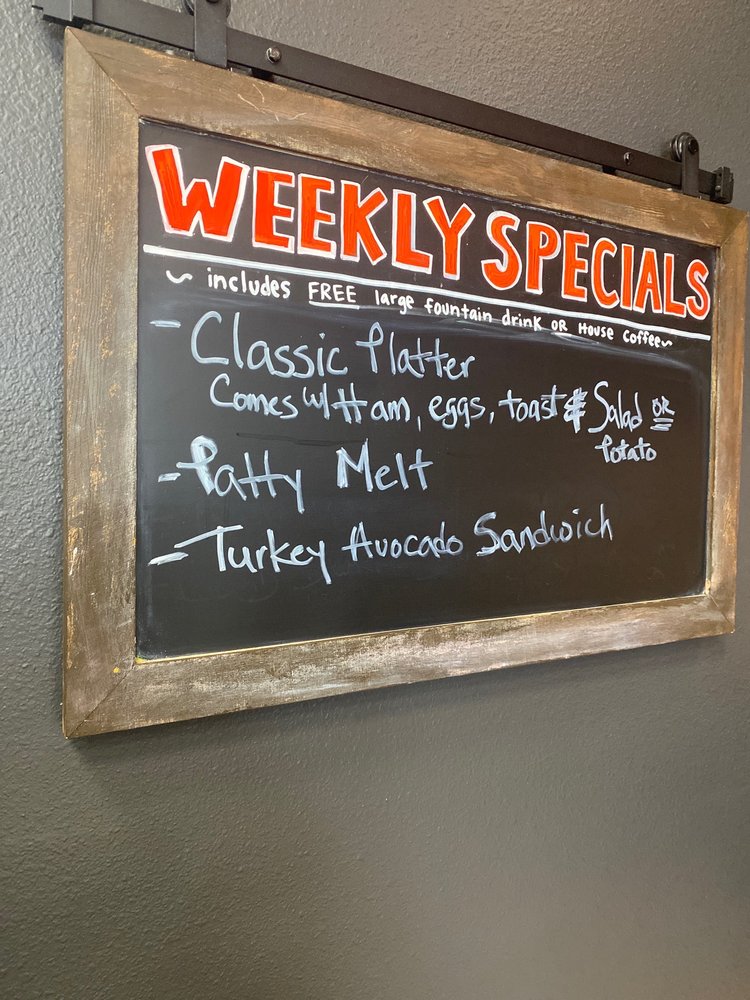 WEEKLY SPECIALS
~ includes FREE large fountain drink OR House Coffee~
- Classic Platter
Comes w/ Ham, eggs, toast & Salad OR
Potato
- Patty Melt
- Turkey Avocado Sandwich